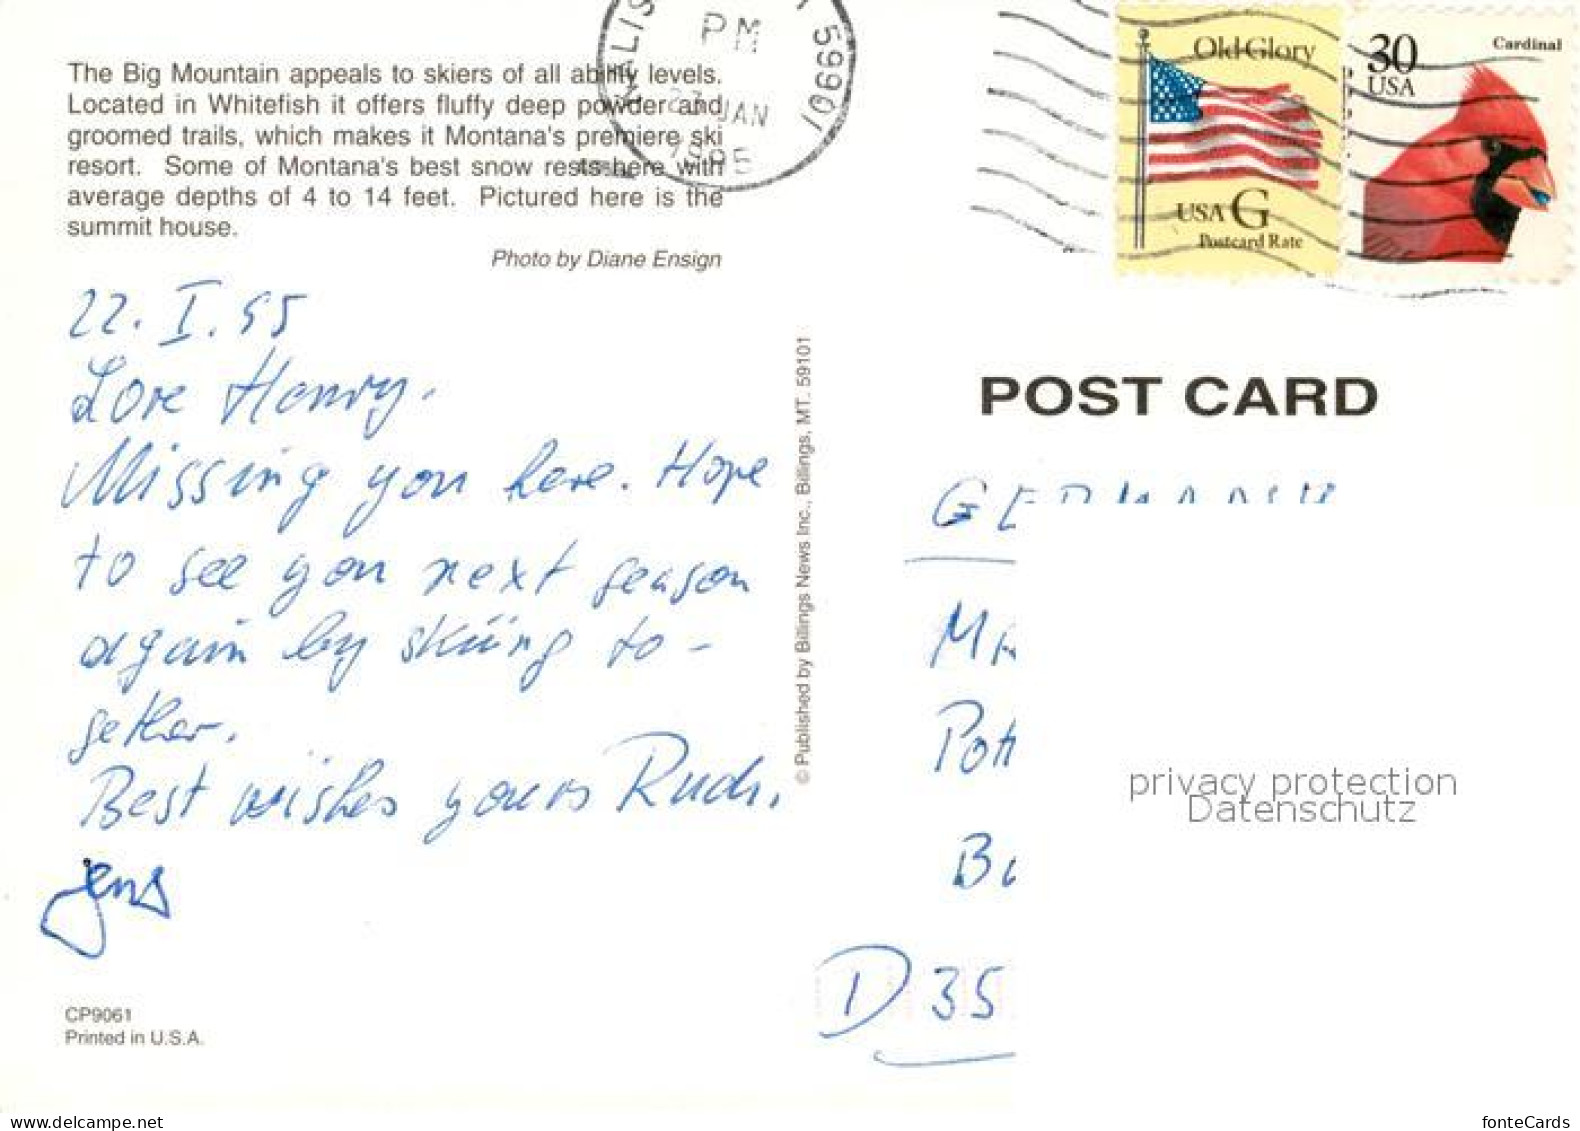 The Big Mountain appeals to skiers of all ability levels.
Located in Whitefish it offers fluffy deep powder and
groomed trails, which makes it Montana's premiere ski
resort. Some of Montana's best snow rests here with
average depths of 4 to 14 feet. Pictured here is the
summit house.
Photo by Diane Ensign
PM
23 JAN
1995
59901
Old Glory
USA G
Postcard Rate
30
USA
Cardinal
22. I. 95
Love Henry.
Missing you here. Hope
to see you next season
again by skiing to-
gether.
Best wishes yours Rudi,
Jens
CP9061
Printed in U.S.A.
© Published by Billings News Inc., Billings, MT. 59101
POST CARD
GERMANY
D 35
privacy protection
Datenschutz
the best of ansichtskarten.com
fonteCards